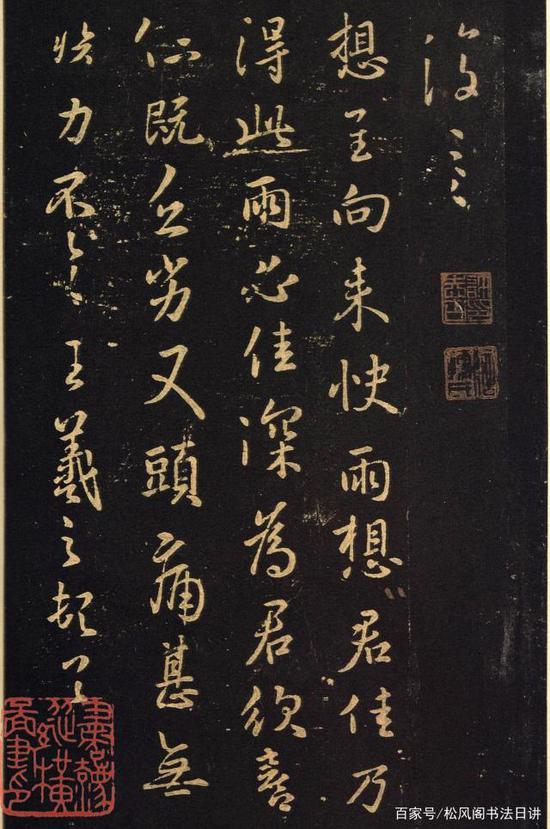 想至向来快雨想君佳乃
得此雨佳深為君欣喜
既乏劣又頭痛甚無
力不王羲之頓首
百家号/松风阁书法日讲